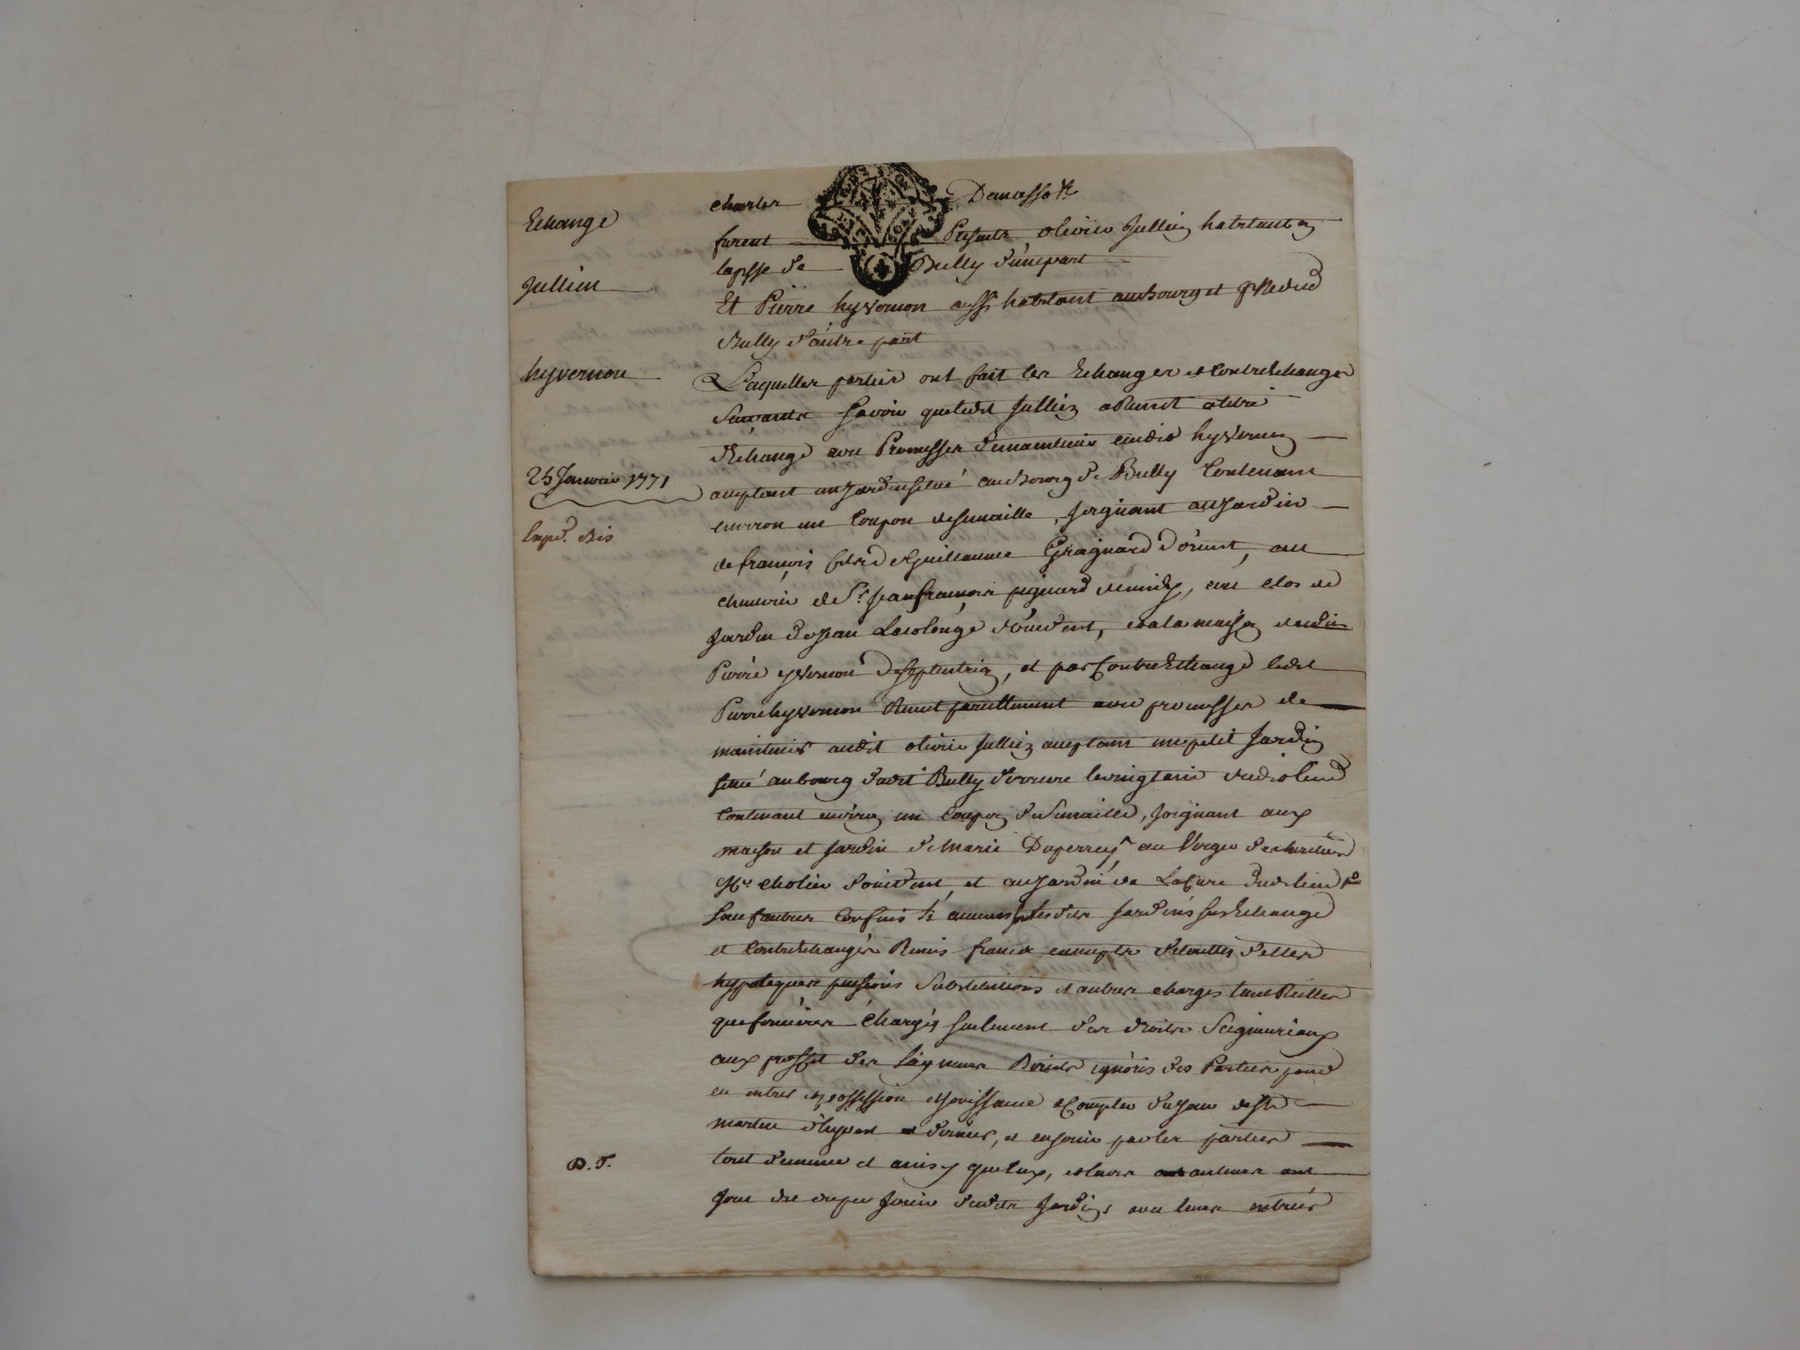 Echange
Jullien
hyvernon
25 Janvier 1771
Expd. bis
D. F.
charles Demasso
furent Presents, olivier Jullien habitant en
lapsse de Bully d'une part
Et Pierre hyvernon aussi habitant au bourg et psse dud
Bully d'autre part
Lesquelles parties ont fait les Echanges et contrechanges
suivants Savoir que ledit Jullien a Remit a titre
d'Echange avec Promesses de maintenir audit hyvernon
aceptant un jardin situé au bourg de Bully Contenant
environ un Coupon de semaille, joignant au jardin
de françois fils de Guillaume Graignard d'orient, au
de Sr. Jean francois pignard de midy, au clos de
jardin de Jean Lacolonge d'occident, et a la maison dudit
Pierre yvernon de septentrion, et par Contrechange ledit
Pierre hyvernon Remet pareillement avec promesses de
maintenir audit olivier Jullien aceptant un petit jardin
situé au bourg dudit Bully dud lieud
Contenant environ un Coupon de semaille, joignant aux
maison et jardin de Marie Duperrey au Verger
Mr. cholier d'occident, et au jardin de La Cure dud lieud
sauf autres Confins lesdits jardins sus Echangé
et Contrechangés Remis francs exempts de toutes dettes
hypoteques pensions Substitutions et autres charges tant Réelles
que foncières Chargés seulement des droits Seigneuriaux
aux proffit des Seigneurs Directs ignorés des Parties pour
en entrer en possession et jouissance a Compter du jour de St
martin dernier, et en jouir par les parties
tout de meme et ainsy qu'eux, et leurs auteurs ont
joui dû ou pu jouir desdits jardins avec leurs entrées